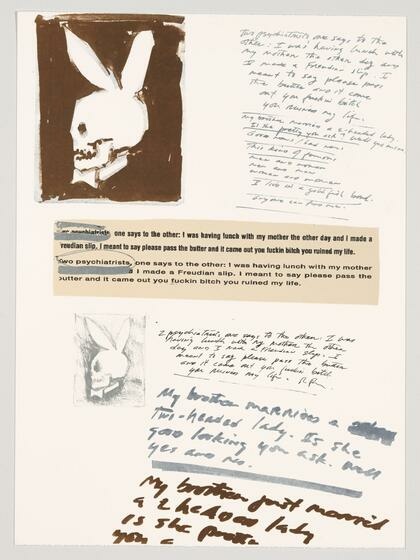 Two psychiatrists one says to the
other: I was having lunch with
my mother the other day and
I made a Freudian slip. I
meant to say please pass
the butter and it came
out you fuckin bitch
you ruined my life.
my brother married a 2 headed lady.
Is she pretty you ask? Well yes and no
Good news/bad news
men and women
men and men
women and women
I live in a goldfish bowl.
psychiatrists, one says to the other: I was having lunch with my mother the other day and I made a
reudian slip. I meant to say please pass the butter and it came out you fuckin bitch you ruined my life.
two psychiatrists, one says to the other: I was having lunch with my mother
I made a Freudian slip. I meant to say please pass the
butter and it came out you fuckin bitch you ruined my life.
2 psychiatrists, one says to the other: I was
having lunch with my mother the other
day and I made a Freudian slip. I
meant to say please pass the butter
and it came out you fuckin bitch
you ruined my life. R.P.
My brother married a
two-headed lady. Is she
good looking you ask. Well
yes and no.
My brother just married
a 2 headed lady
is she prett
you